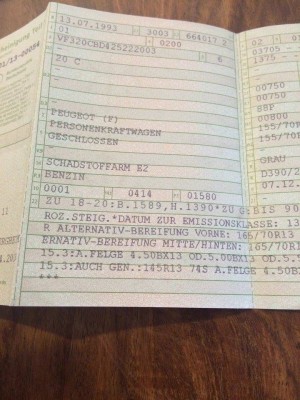 13.07.1993 3003 664017 3
01 0200
VF320CBD425222003 6
-
20 C
-
-
PEUGEOT (F)
PERSONENKRAFTWAGEN
GESCHLOSSEN
-
SCHADSTOFFARM E2
BENZIN
0001 0414 01580
ZU 18-20:B.1589,H.1390*ZU G:BIS 90
ROZ.STEIG.*DATUM ZUR EMISSIONSKLASSE: 13
R ALTERNATIV-BEREIFUNG VORNE: 165/70R13
ERNATIV-BEREIFUNG MITTE/HINTEN: 165/70R13
15.3:A.FELGE 4.50BX13 OD.5.00BX13 OD.5.5
15.3:AUCH GEN.:145R13 74S A.FELGE 4.50B
***
02 01
03705 -
1375 -
-
00750
00750
89P
00800
155/70R
155/70
-
GRAU
D390/2
07.12.
11